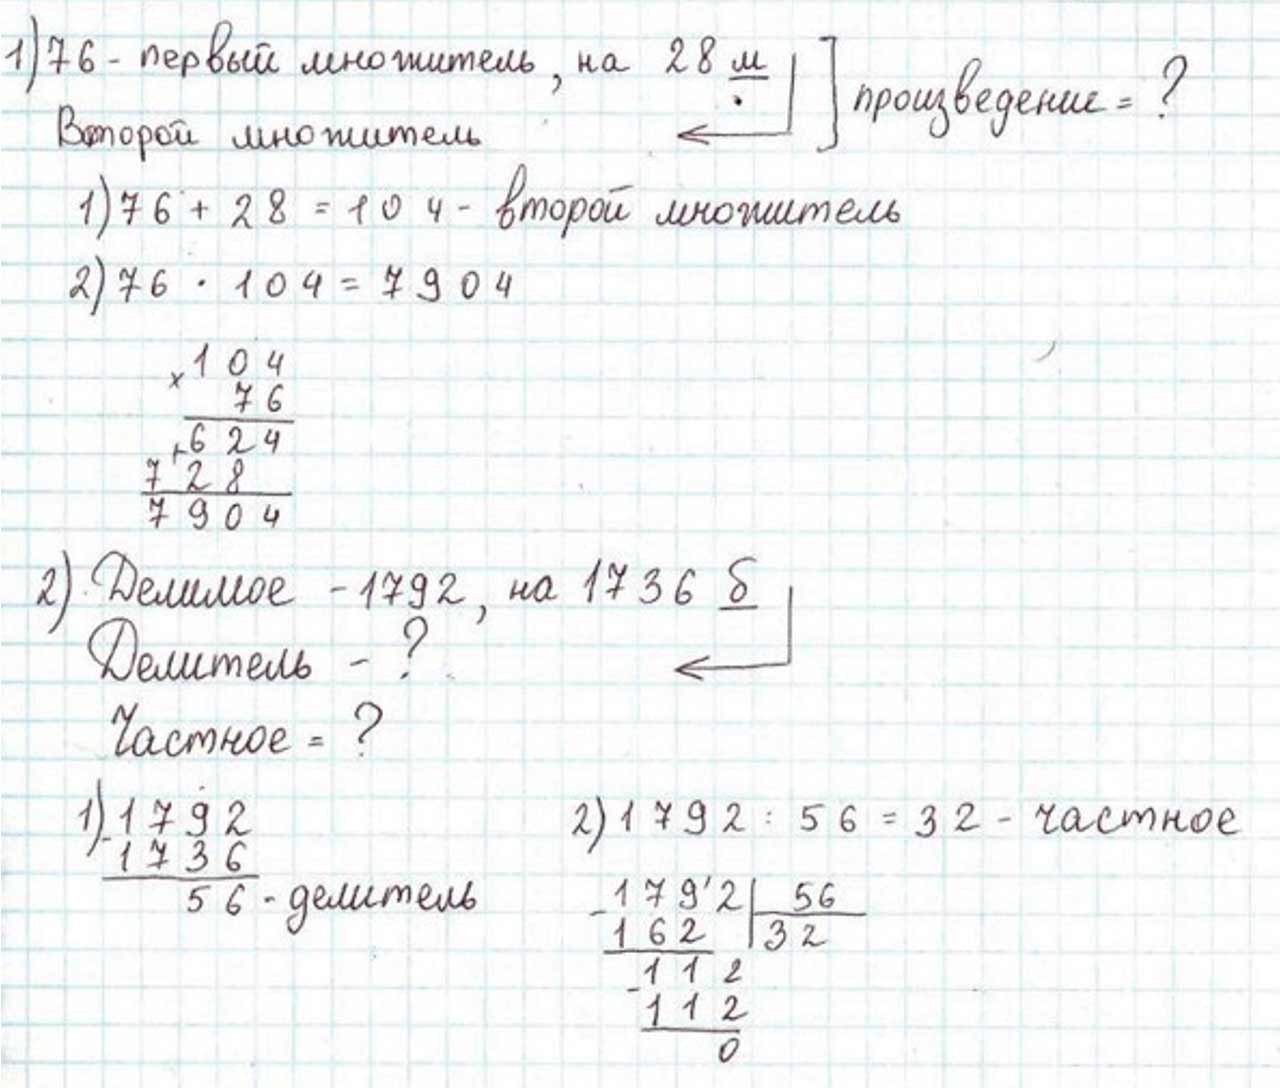 1) 76 - первый множитель, на 28 м ] произведение = ?
Второй множитель
1) 76 + 28 = 104 - второй множитель
2) 76 · 104 = 7904
× 104
76
+ 624
728
7904
2) Делимое - 1792, на 1736 б
Делитель - ?
Частное = ?
1) - 1792
1736
56 - делитель
2) 1792 : 56 = 32 - частное
- 179'2 | 56
162 | 32
- 112
112
0